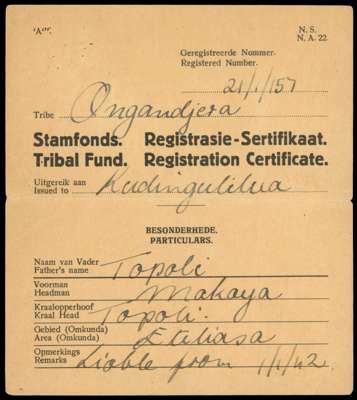 "A".
N. S.
N. A. 22.
Geregistreerde Nommer.
Registered Number.
21/1/157
Tribe Ongandjera
Stamfonds. Registrasie-Sertifikaat.
Tribal Fund. Registration Certificate.
Uitgereik aan
Issued to Kudingulilua
BESONDERHEDE.
PARTICULARS.
Naam van Vader
Father's name Topoli
Voorman
Headman Makaya
Kraalopperhoof
Kraal Head Topoli.
Gebied (Omkunda)
Area (Omkunda) Etiliasa
Opmerkings
Remarks Liable from 1/1/42.